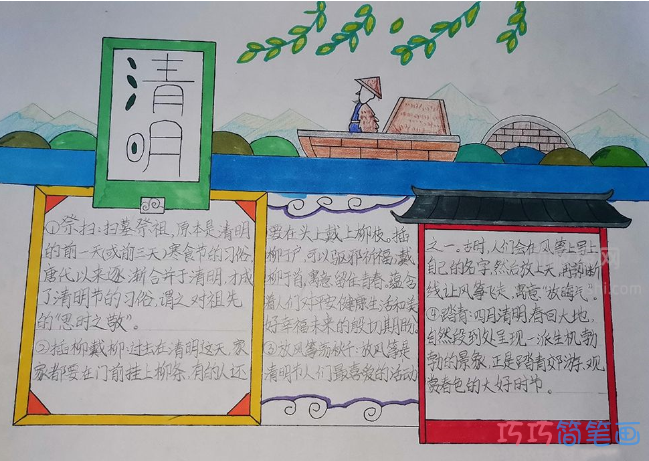 清明
①祭扫:扫墓祭祖,原本是清明
的前一天(或前三天)寒食节的习俗,
唐代以来逐渐合并于清明,才成
了清明节的习俗,谓之对祖先
的"思时之敬"。
②插柳戴柳:过去在清明这天,家
家都要在门前挂上柳条,有的人还
要在头上戴上柳枝。插
柳于户,可以驱邪祈福,戴
柳于首,寓意留住青春,蕴含
着人们对平安健康生活和美
好幸福未来的殷切期盼。
③放风筝荡秋千:放风筝是
清明节人们最喜爱的活动
之一。古时,人们会在风筝上写上
自己的名字,然后放上天,再剪断
线让风筝飞走,寓意"放晦气。
④踏青:四月清明,春回大地,
自然段到处呈现一派生机勃
勃的景象,正是踏青郊游、观
赏春色的大好时节。
巧巧简笔画